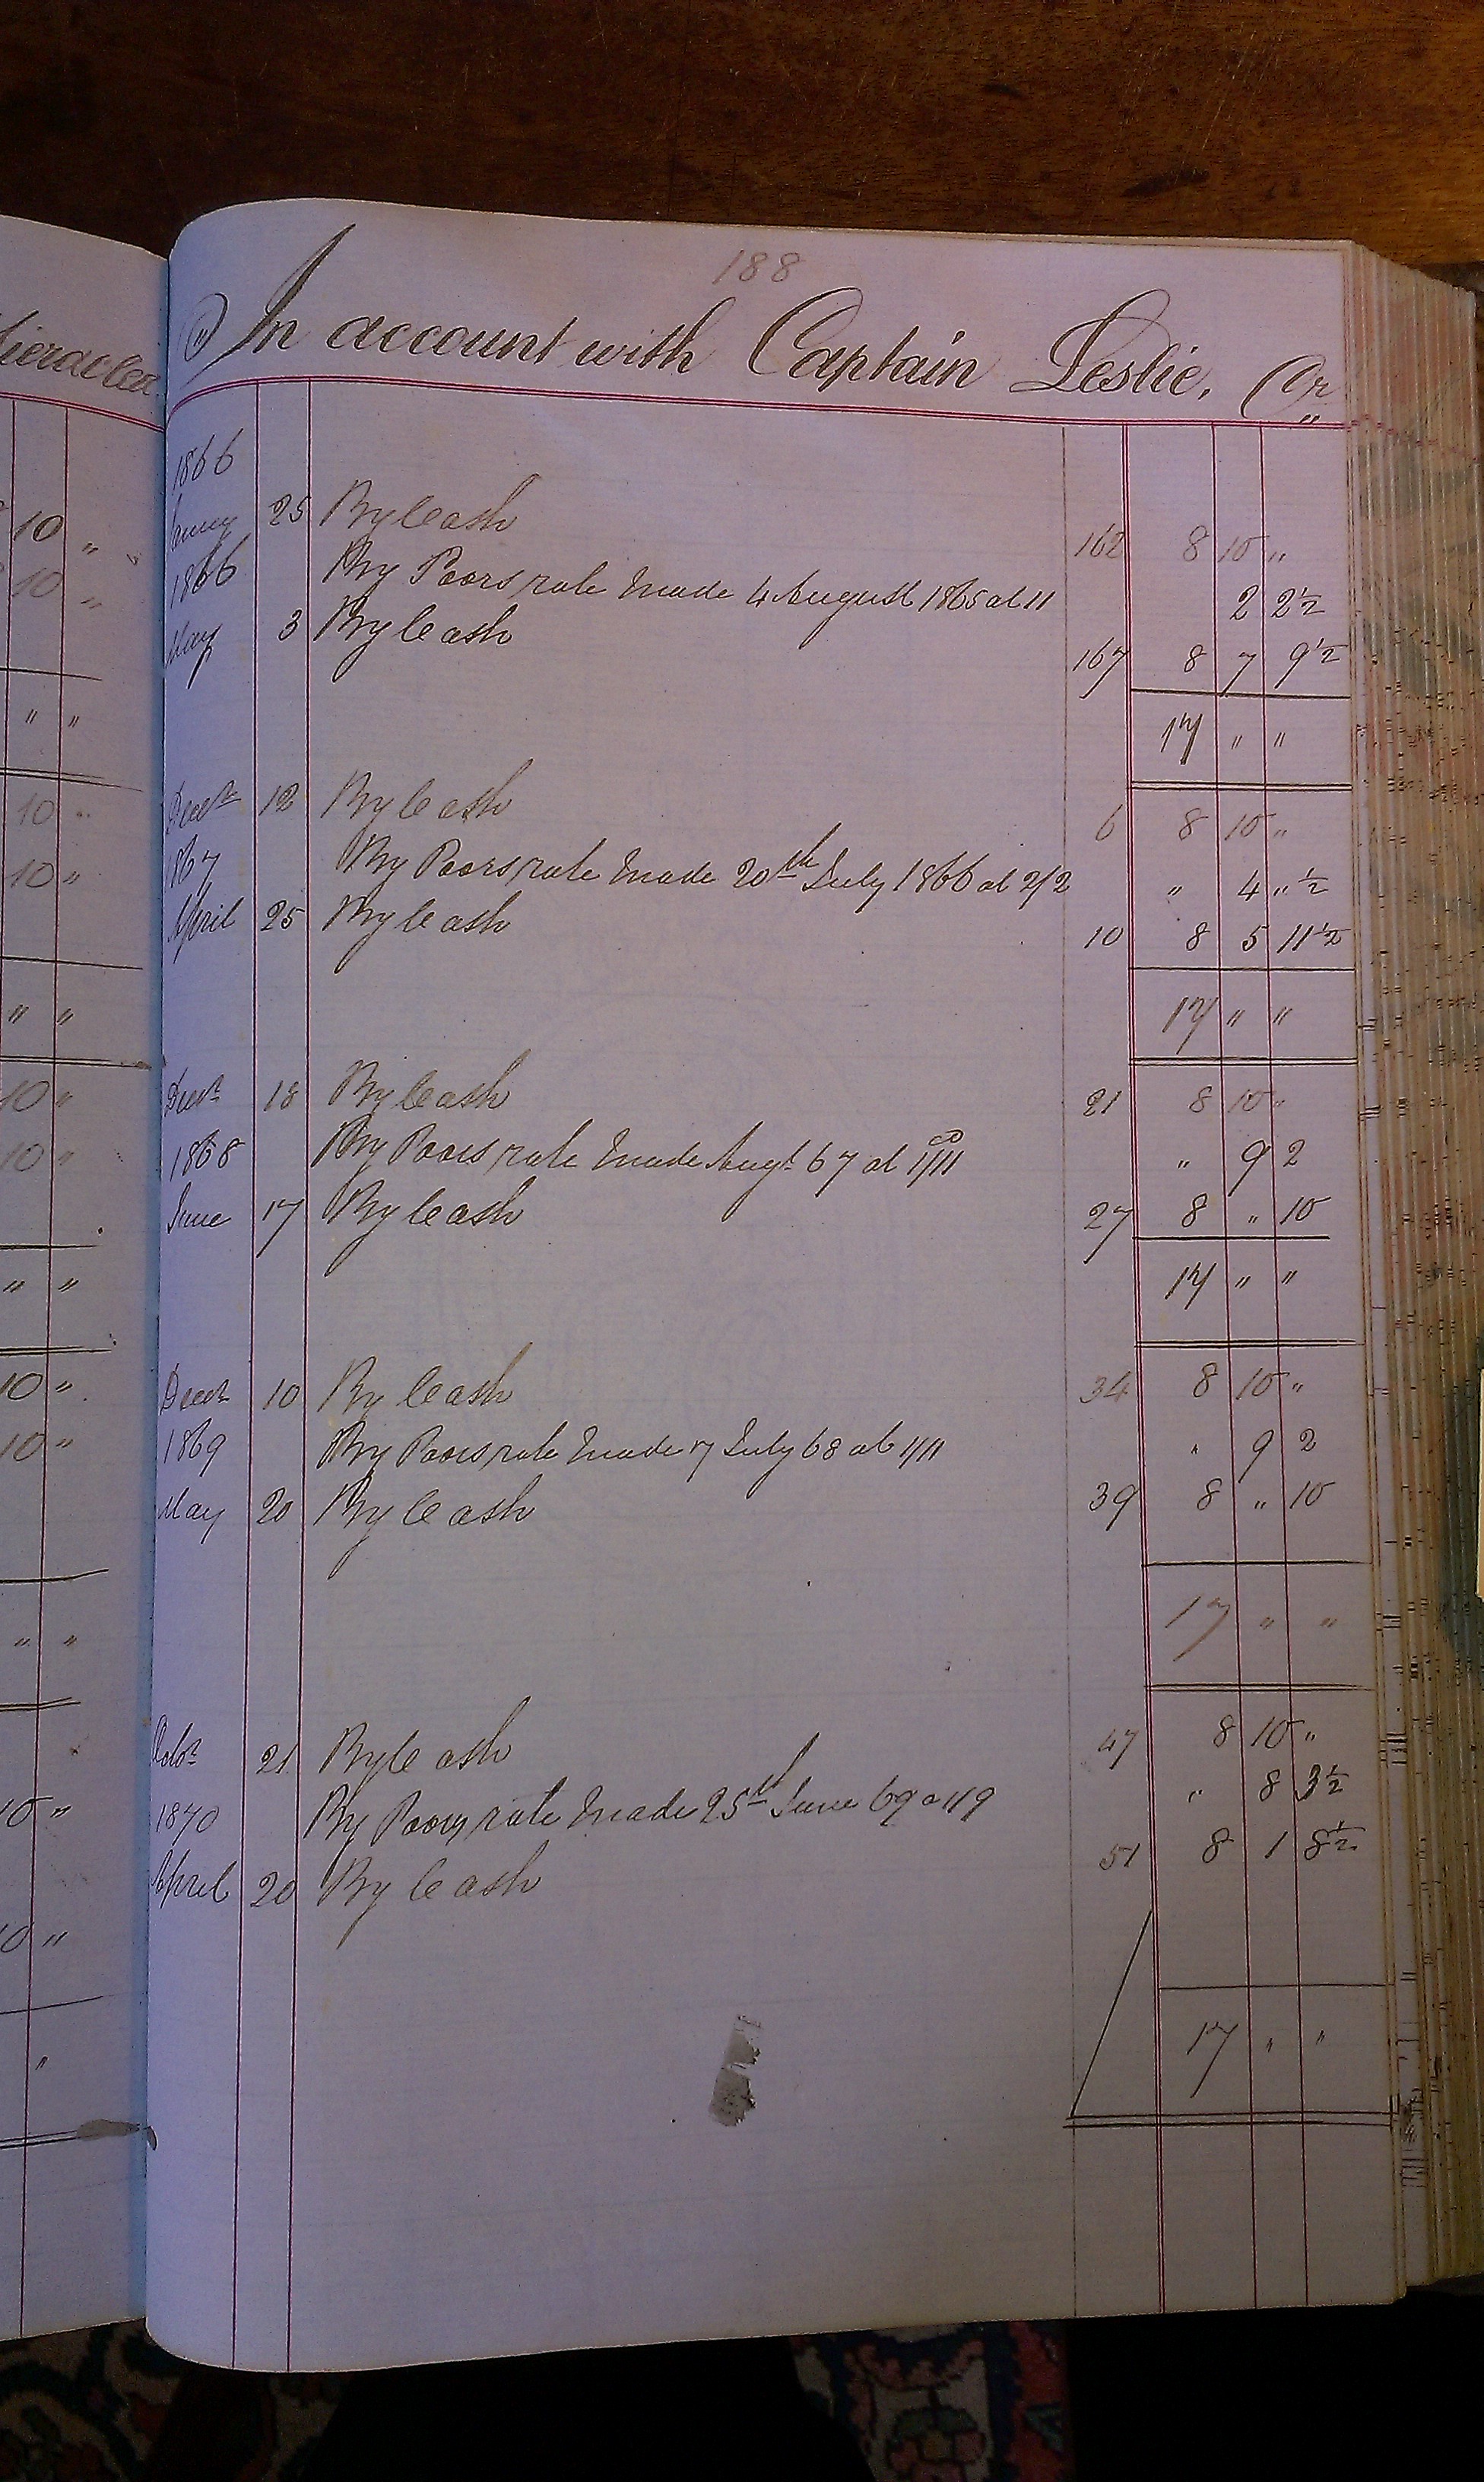 188
In account with Captain Leslie. Cr
1866
Jany 25 By Cash 162 8 10 "
1866 By Poors rate made 4 August 1865 at 11 2 2½
May 3 By Cash 167 8 7 9½
17 " "
Decr 12 By Cash 6 8 10 "
1867 By Poors rate made 20th July 1866 at 2/2 " 4 " ½
April 25 By Cash 10 8 5 11½
17 " "
Decr 18 By Cash 21 8 10 "
1868 By Poors rate made Augt 67 at 1/11 " 9 2
June 17 By Cash 27 8 " 10
17 " "
Decr 10 By Cash 34 8 10 "
1869 By Poors rate made 7 July 68 at 1/11 " 9 2
May 20 By Cash 39 8 " 10
17 " "
Octor 21 By Cash 47 8 10 "
1870 By Poors rate made 25th June 69 a 1/9 " 8 3½
April 20 By Cash 51 8 1 8½
17 " "